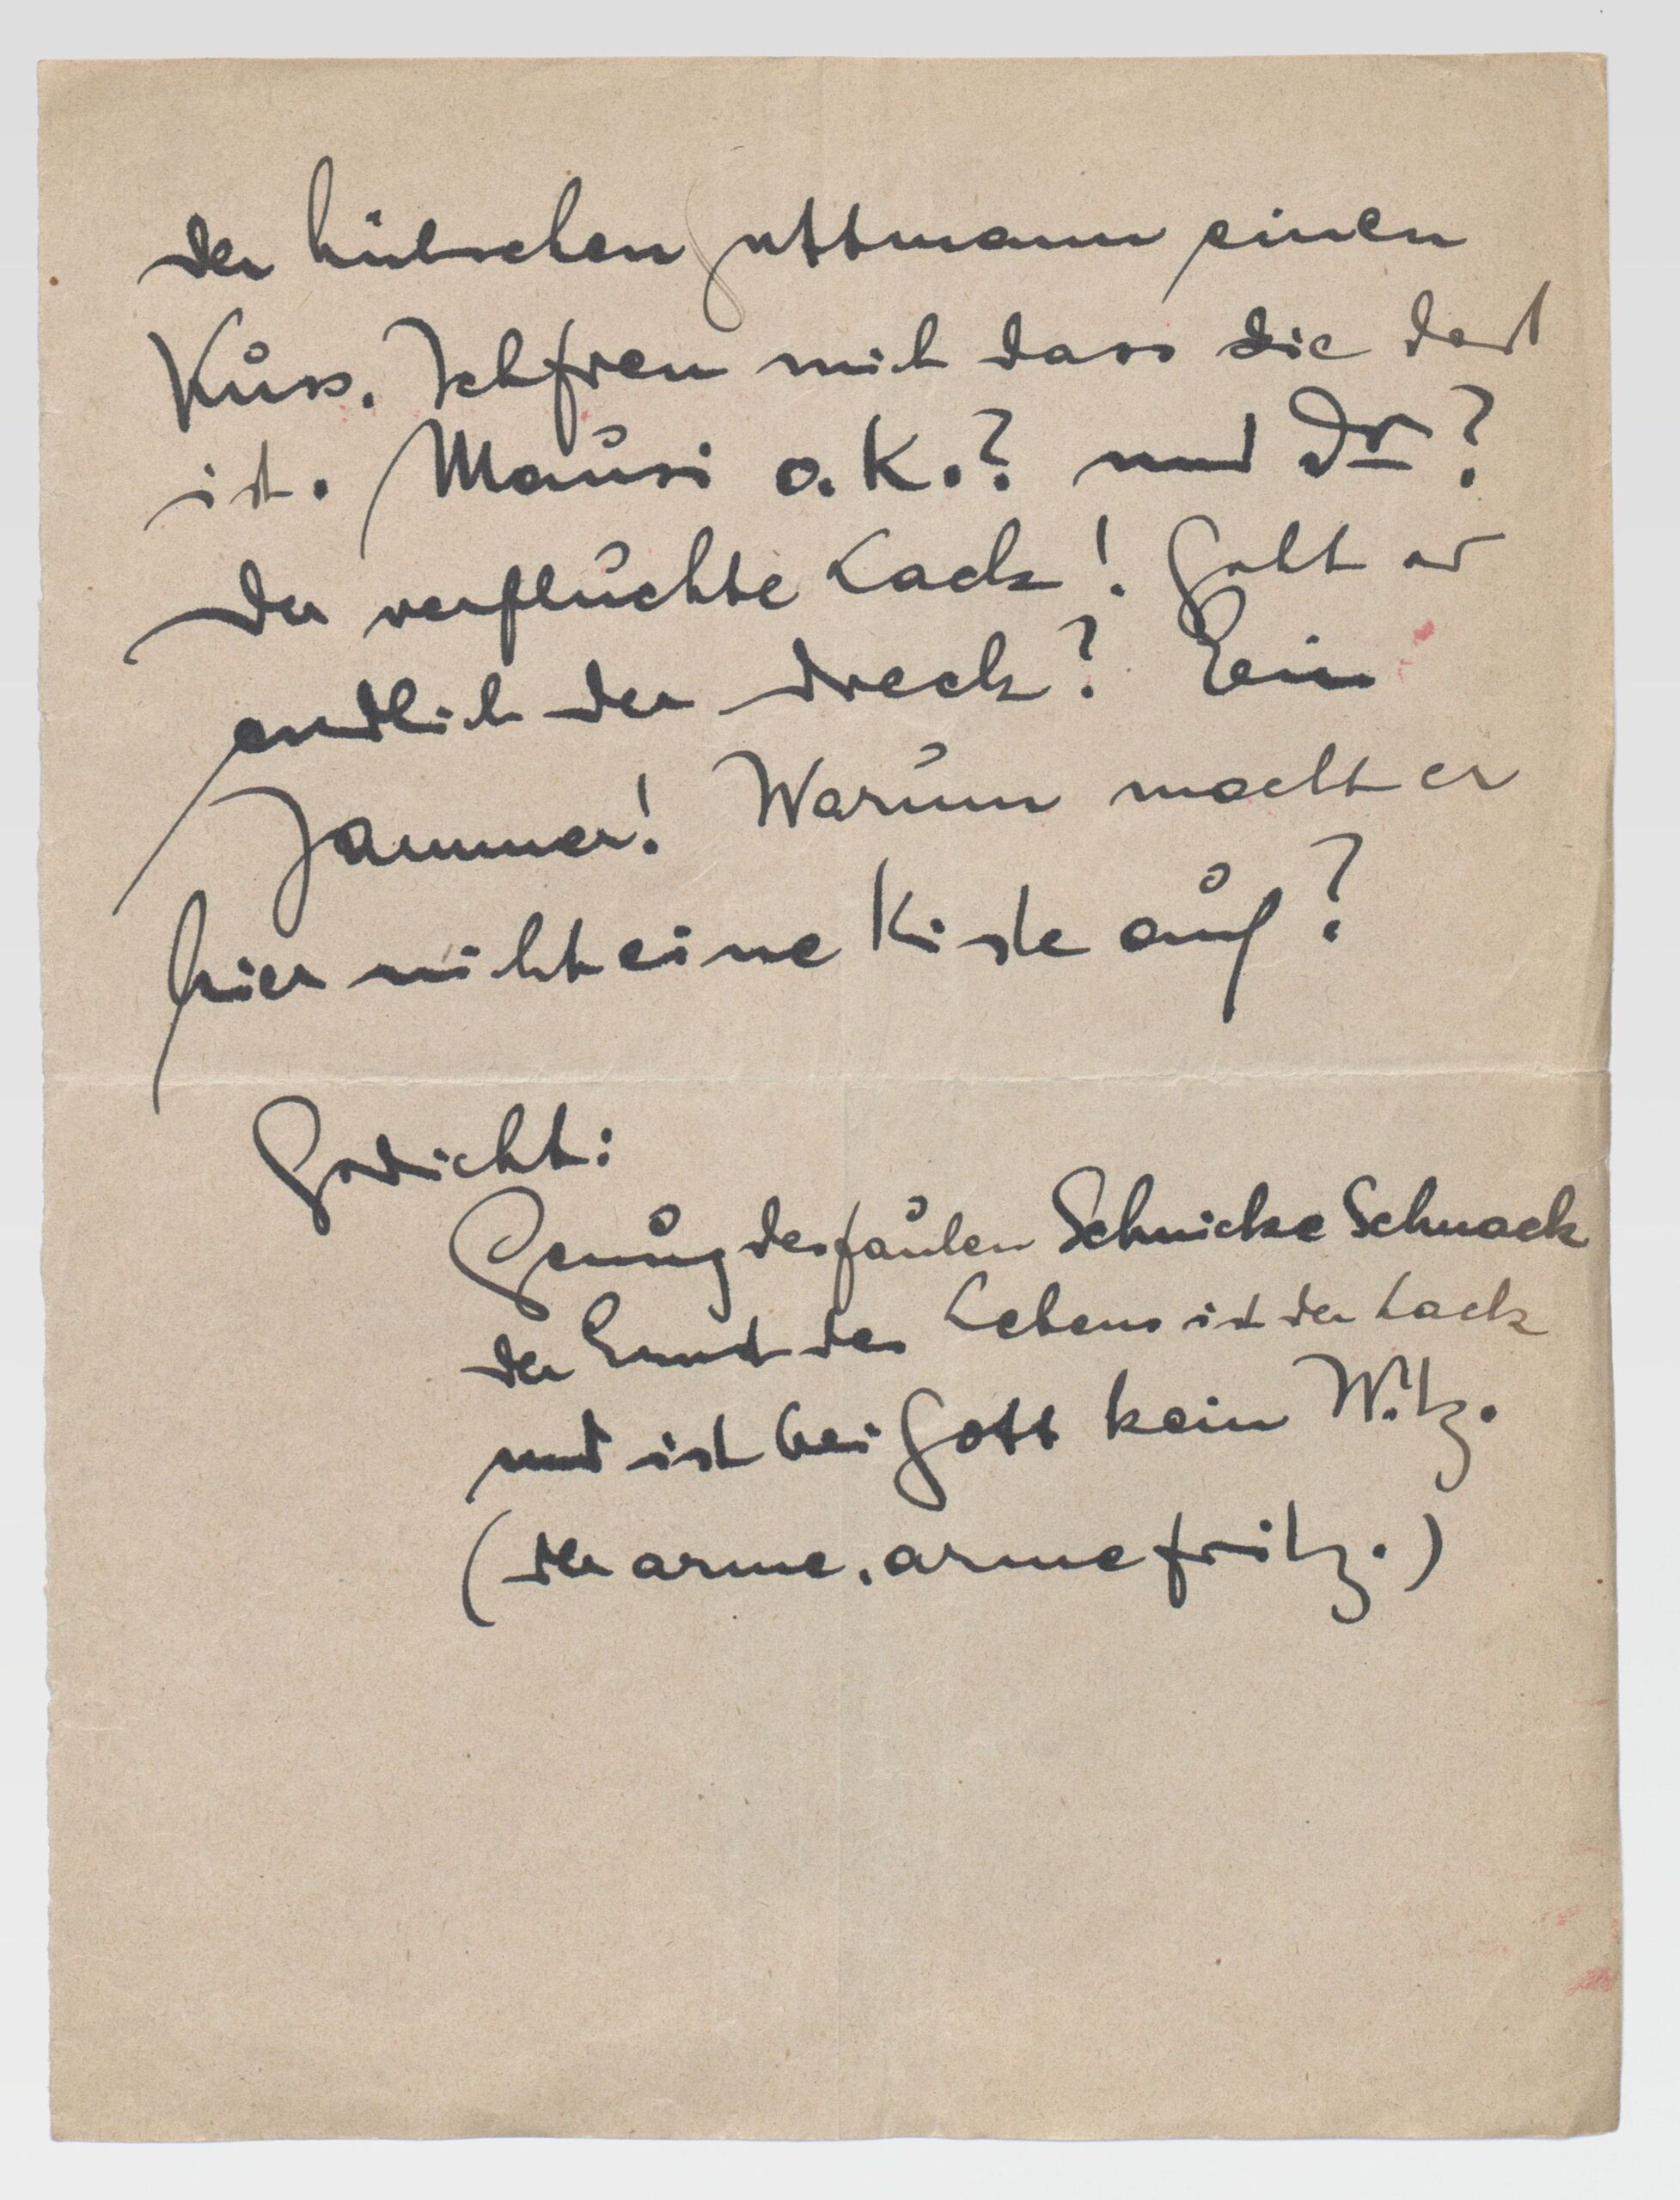 der hübschen Guttmann einen
Kuss. Ich freu mich dass die dort
ist. Mausi o.k.? und Dr?
Der verfluchte Lack! Geht er
endlich der Dreck? Ein
Jammer! Warum macht er
hier nicht eine Kiste auf?
Gedicht:
Genug des faulen Schnicke Schnack
der Ernst des Lebens ist der Lack
und ist bei Gott kein Witz.
(der arme, arme Fritz.)